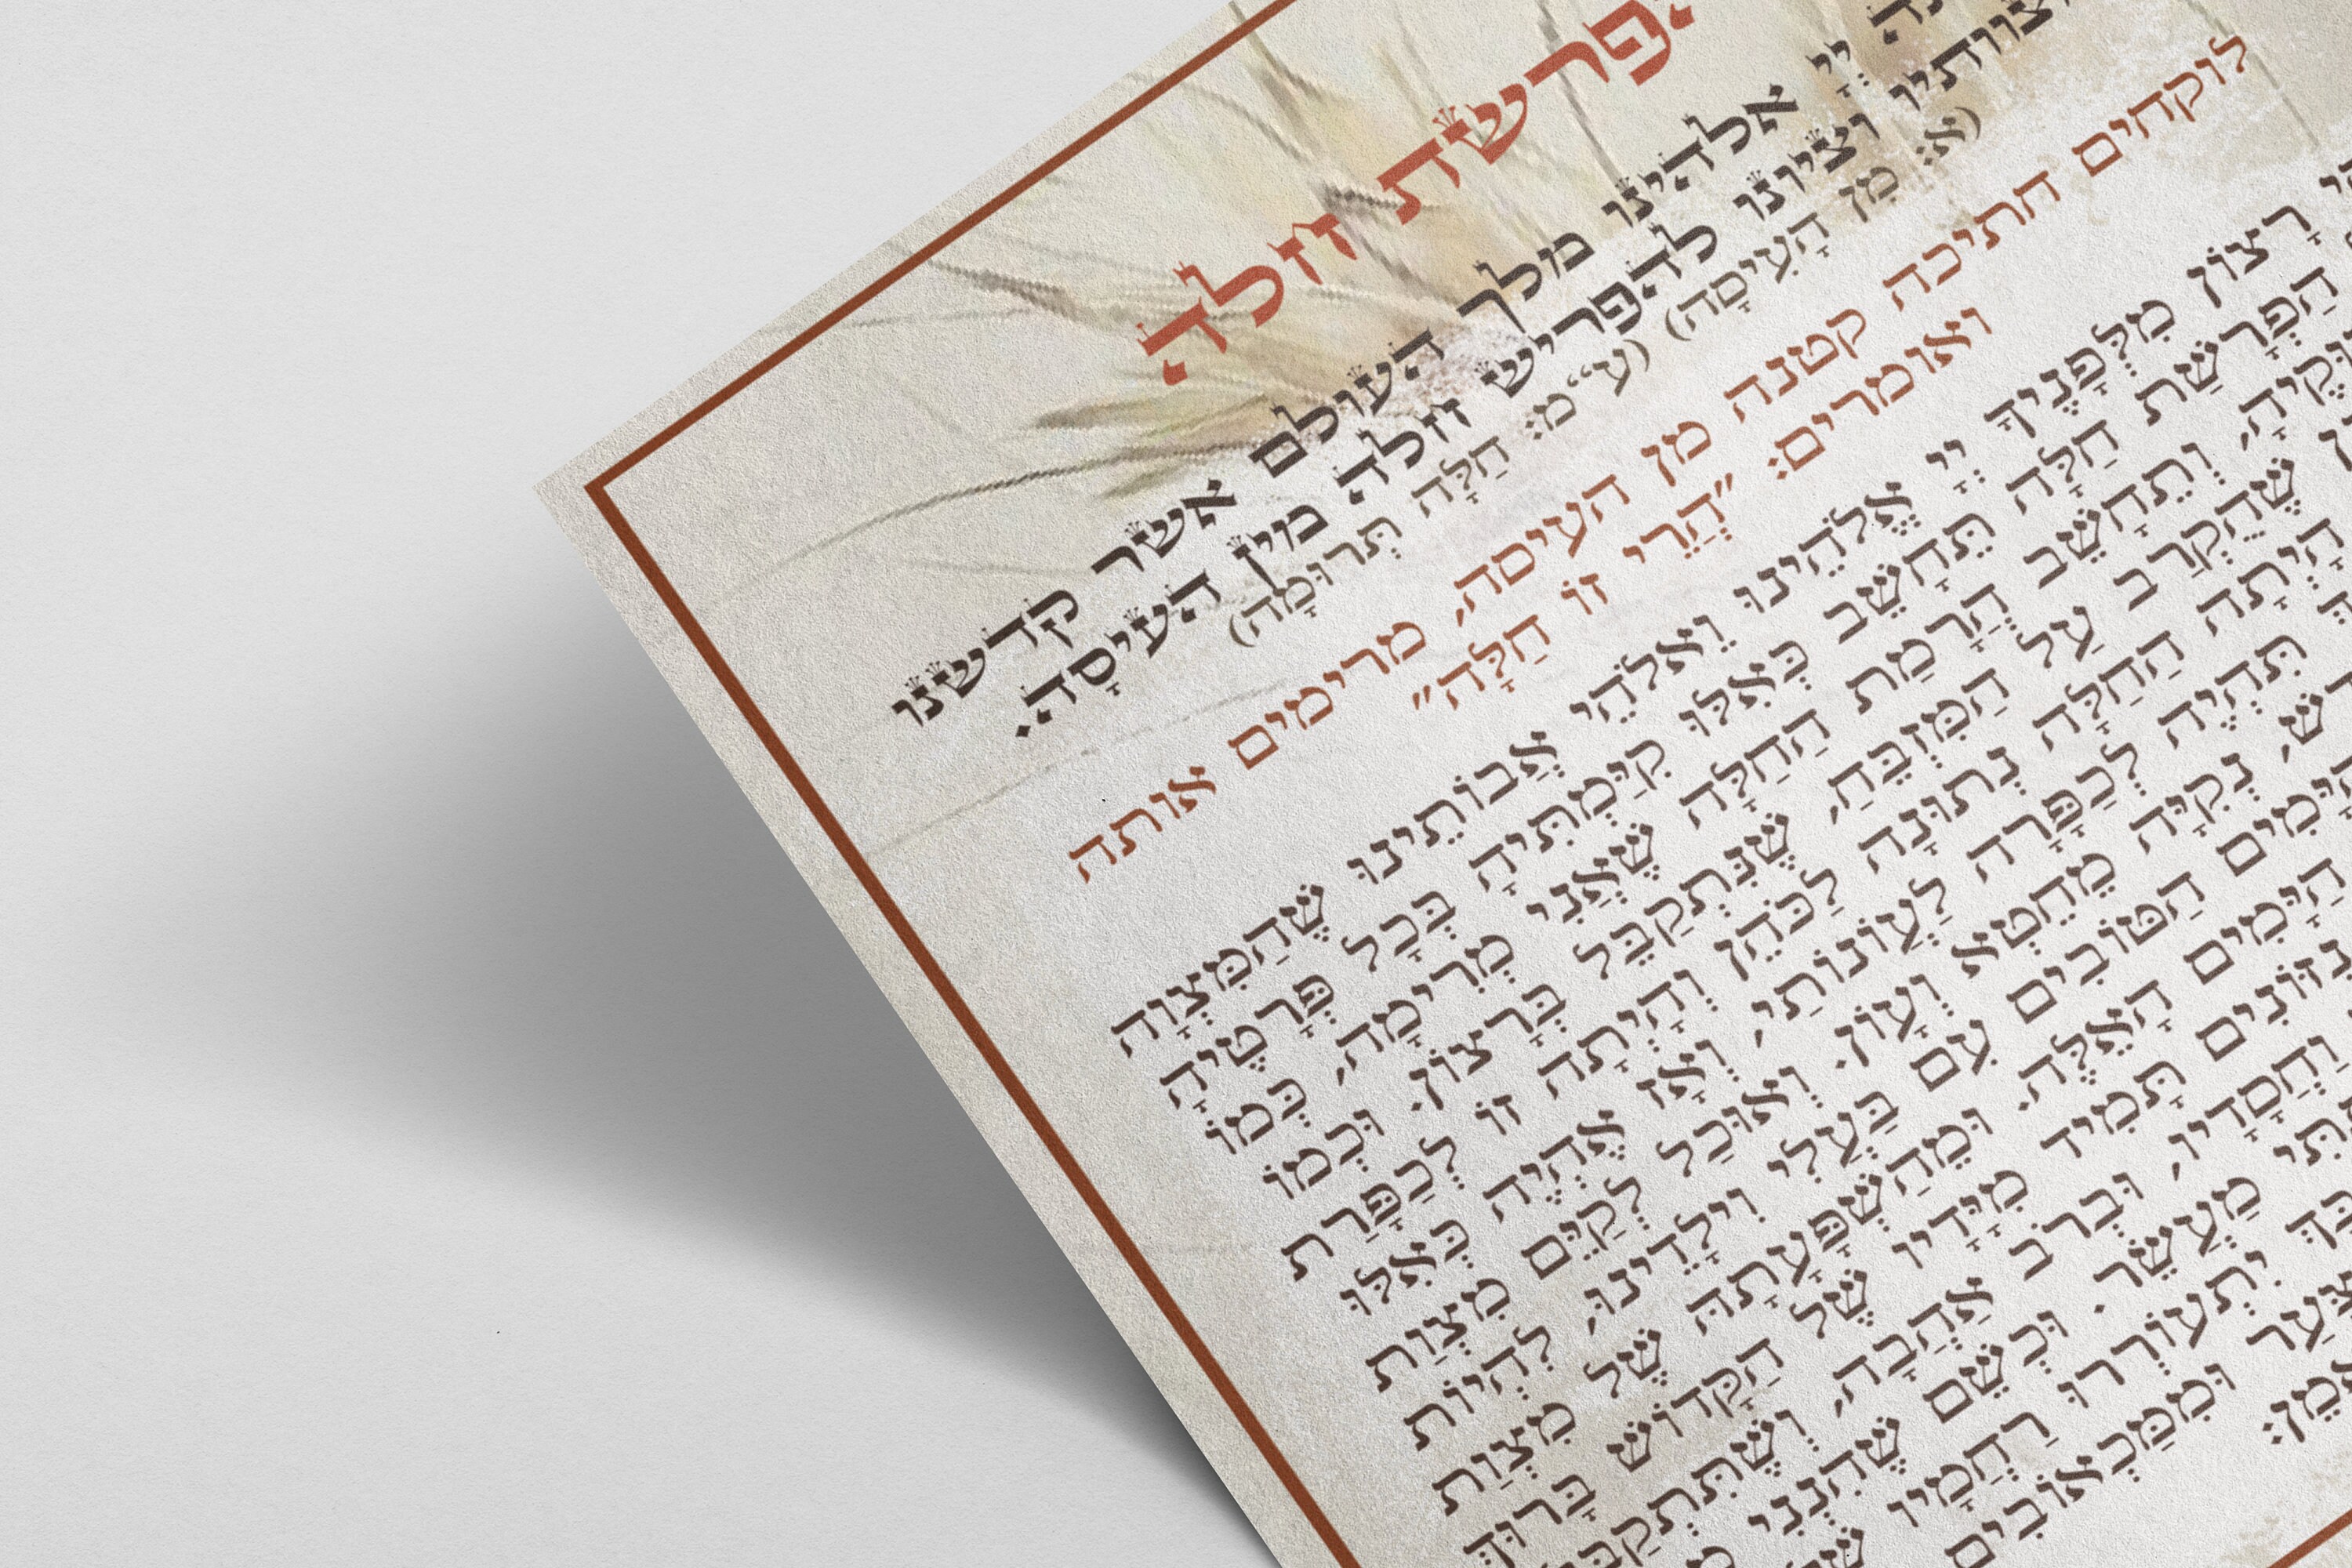 פרשת חלה
יְיָ אלהינו מלך העולם אשר קדשנו
וציונו להפריש חלה מין העיסָה.
(א: מִן הָעִיסָה) (ע״מ: חַלָּה תְּרוּמָה)
לוקחים חתיכה קטנה מן העיסה, מרימים אותה
ואומרים: "הֲרֵי זוֹ חַלָּה"
רָצוֹן מִלְּפָנֶיךָ יְיָ אֱלֹהֵינוּ וֵאלֹהֵי אֲבוֹתֵינוּ שֶׁהַמִּצְוָה
הַפְרָשַׁת חַלָּה תֵּחָשֵׁב כְּאִלּוּ קִיַּמְתִּיהָ בְּכָל פְּרָטֶיהָ
וְתֵחָשֵׁב הֲרָמַת הַחַלָּה שֶׁאֲנִי מְרִימָה, כְּמוֹ
שֶׁהֻקְרַב עַל הַמִּזְבֵּחַ, שֶׁנִּתְקַבֵּל בְּרָצוֹן. וּכְמוֹ
הָיְתָה הַחַלָּה נְתוּנָה לַכֹּהֵן וְהָיְתָה זוֹ לְכַפָּרַת
תִּהְיֶה לְכַפָּרָה לַעֲוֹנוֹתַי, וְאָז אֶהְיֶה כְּאִלּוּ
נְקִיָּה מֵחֵטְא וְעָוֹן. וְאוּכַל לְקַיֵּם מִצְוַת
הַטּוֹבִים עִם בַּעְלִי וִילָדֵינוּ, לִהְיוֹת
הַיָּמִים הָאֵלֶּה. וּמֵהַשְׁפָּעָתָהּ שֶׁל מִצְוַת
תָּמִיד מִיָּדָיו שֶׁל הַקָּדוֹשׁ בָּרוּךְ
וַחֲסָדָיו, וּבְרֹב אַהֲבָה, וְשֶׁתִּתְקַבֵּל
מַעֲשֵׂר. וּכְשֵׁם שֶׁהִנְנִי
יִתְעוֹרְרוּ רַחֲמָיו
וּמִמַּכְאוֹבִים